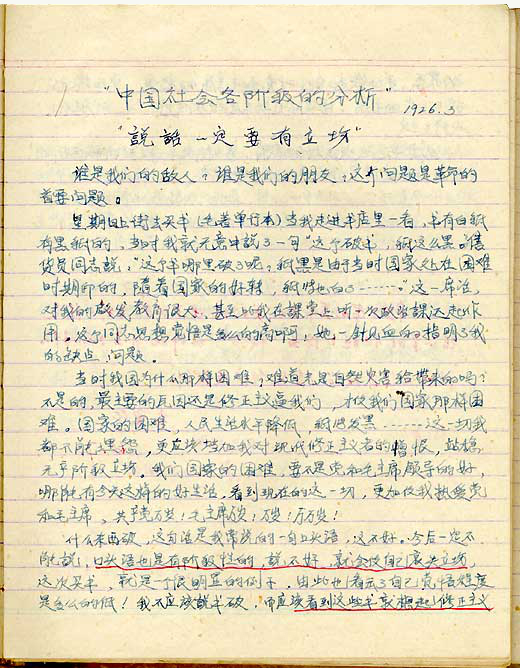 "中国社会各阶级的分析" 1926.3
"説話一定要有立场"
谁是我们的敌人？谁是我们的朋友？这个问题是革命的
首要问题。
星期日上街去买书（毛著单行本）当我走进书店里一看，书有白纸
有黑纸的，当时我就无意中説了一句"这个破书，纸这么黑。"售
货员同志説，"这个书哪里破了呢，纸黑是由于当时国家处在困难
时期印的，随着国家的好转，纸将也白了……"这一席话，
对我的启发教育很大，甚至比我在课堂上听一次政治課还起作
用。这个同志思想觉悟是多么的高啊，她一针见血的指明了我
的缺点、问题。
当时我国为什么那样困难，难道光是自然灾害给带来的吗？
不是的，最主要的原因还是修正主义逼我们，才使我们国家那样困
难。国家的困难，人民生活水平降低，纸张发黑……这一切我
都不能埋怨，更应该增加我对现代修正主义者的憎恨，站稳
无产阶级立场。我们国家的困难，要不是党和毛主席领导的好，
哪能有今天这样的好生活，看到现在的这一切，更加使我热爱党
和毛主席。共产党万岁！毛主席万岁！万岁！万万岁！
什么东西破，这句话是我常説的一句口头语，这不好。今后一定不
能説，口头语也是有阶级性的，説不好，就会使自己丧失立场，
这次买书，就是一个很明显的例子，由此也看出了自己觉悟程度
是多么的低！我不应该説书破，而应该看到这些书就想起修正主义